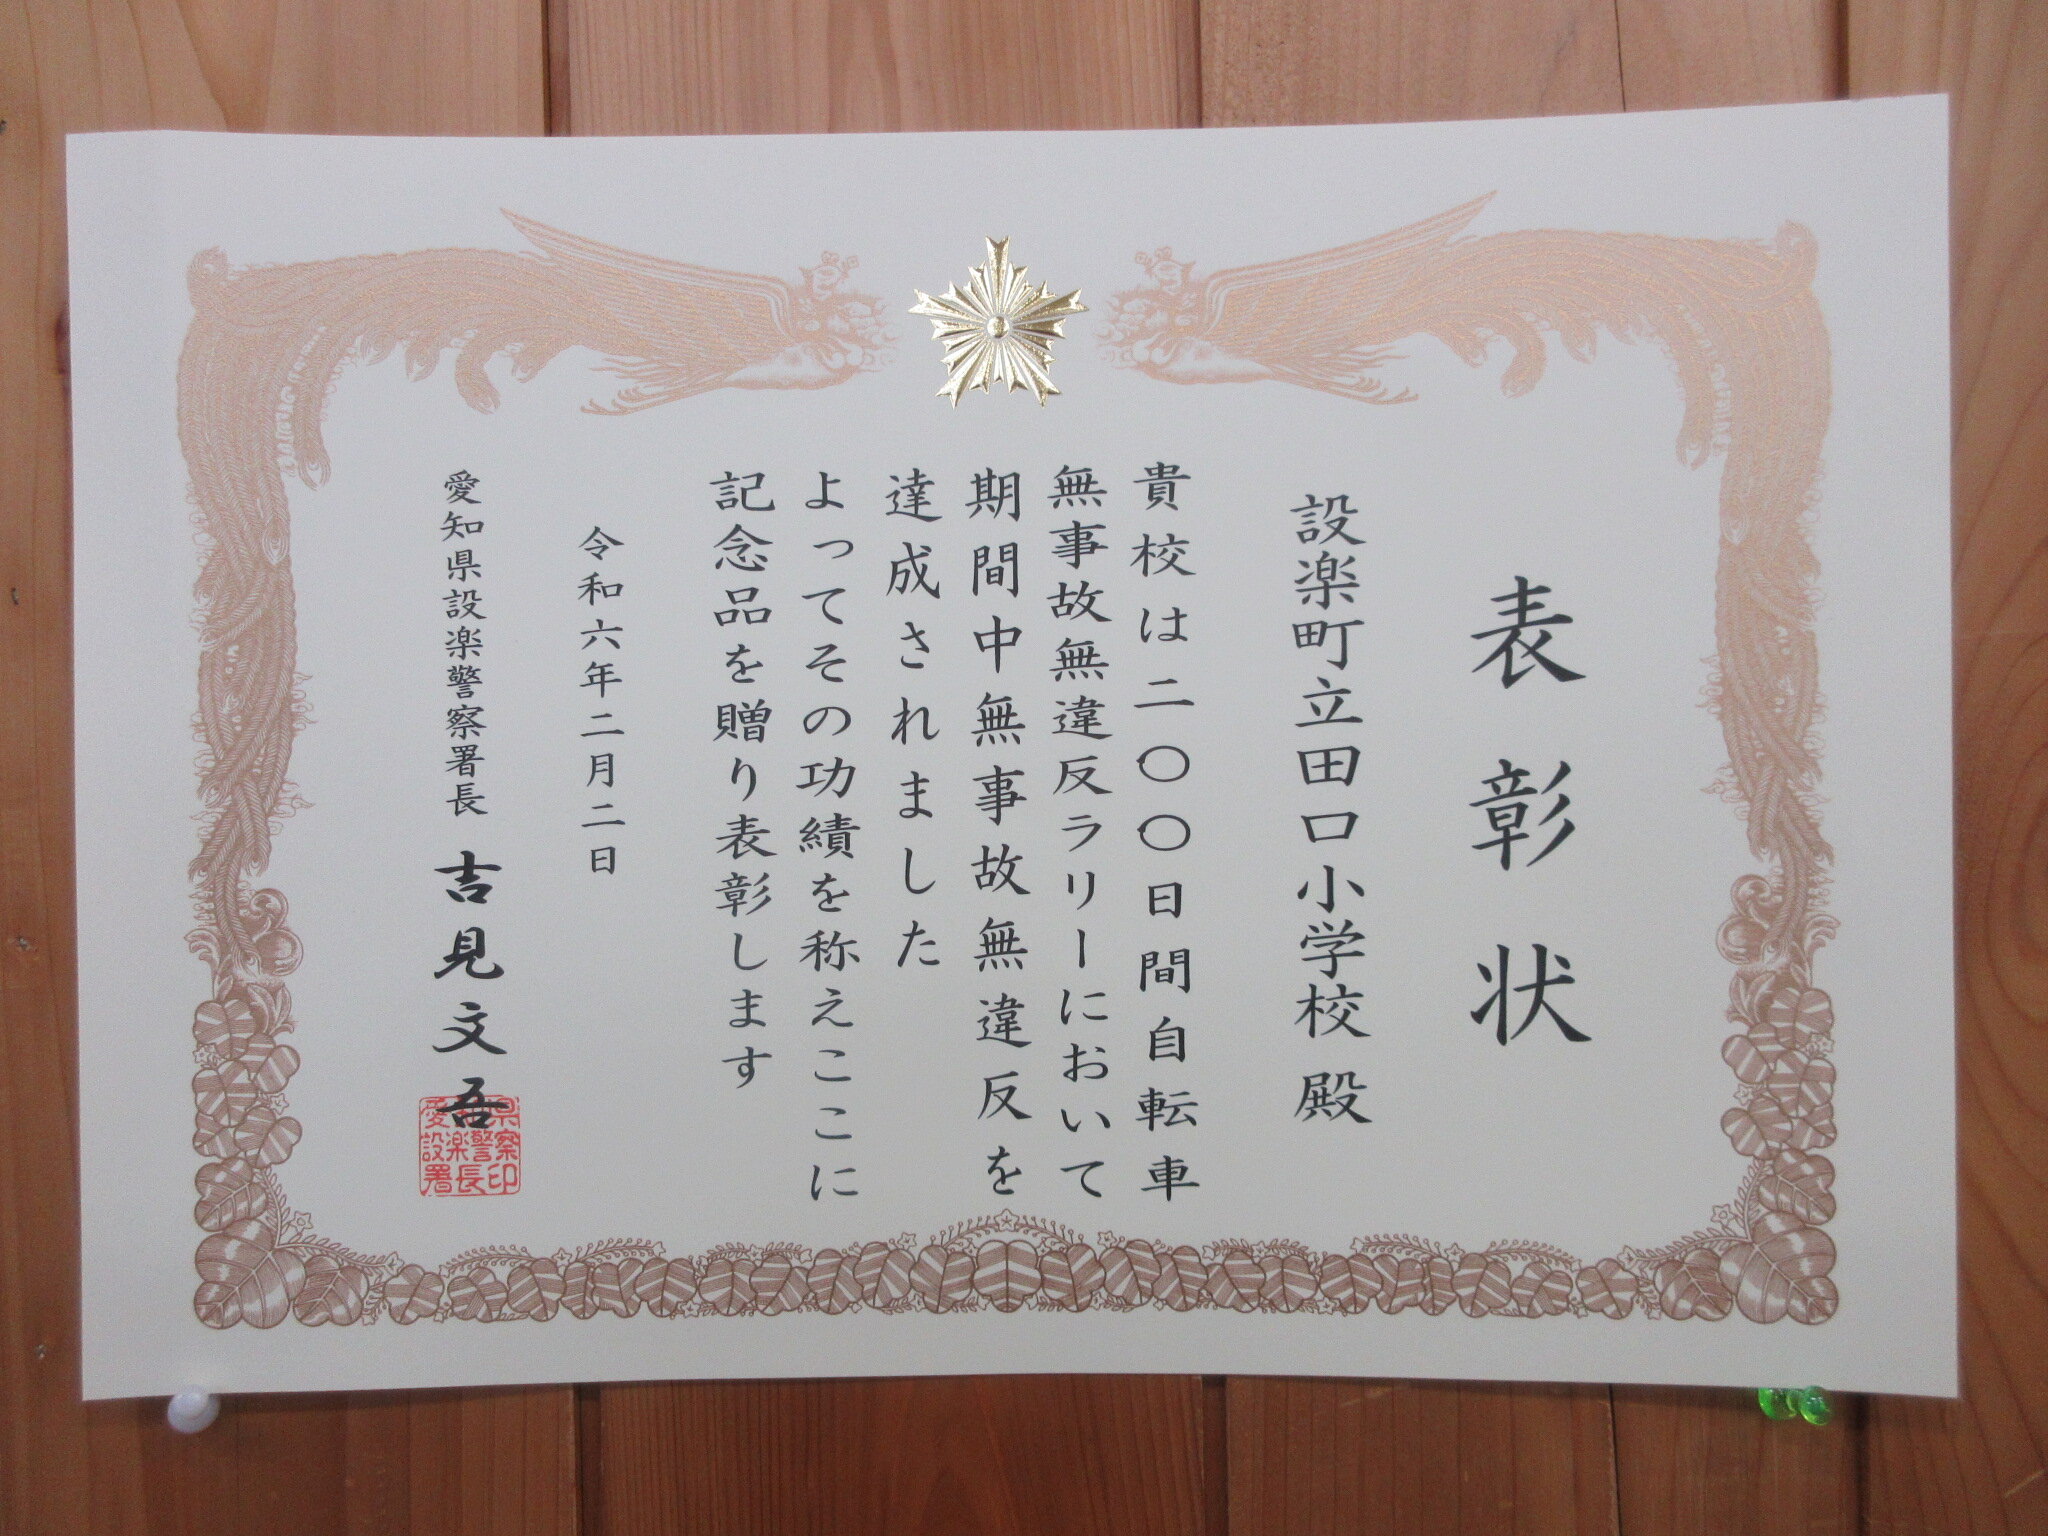 表彰状
設楽町立田口小学校 殿
貴校は二〇〇日間自転車
無事故無違反ラリーにおいて
期間中無事故無違反を
達成されました
よってその功績を称えここに
記念品を贈り表彰します
令和六年二月二日
愛知県設楽警察署長 吉見文吾